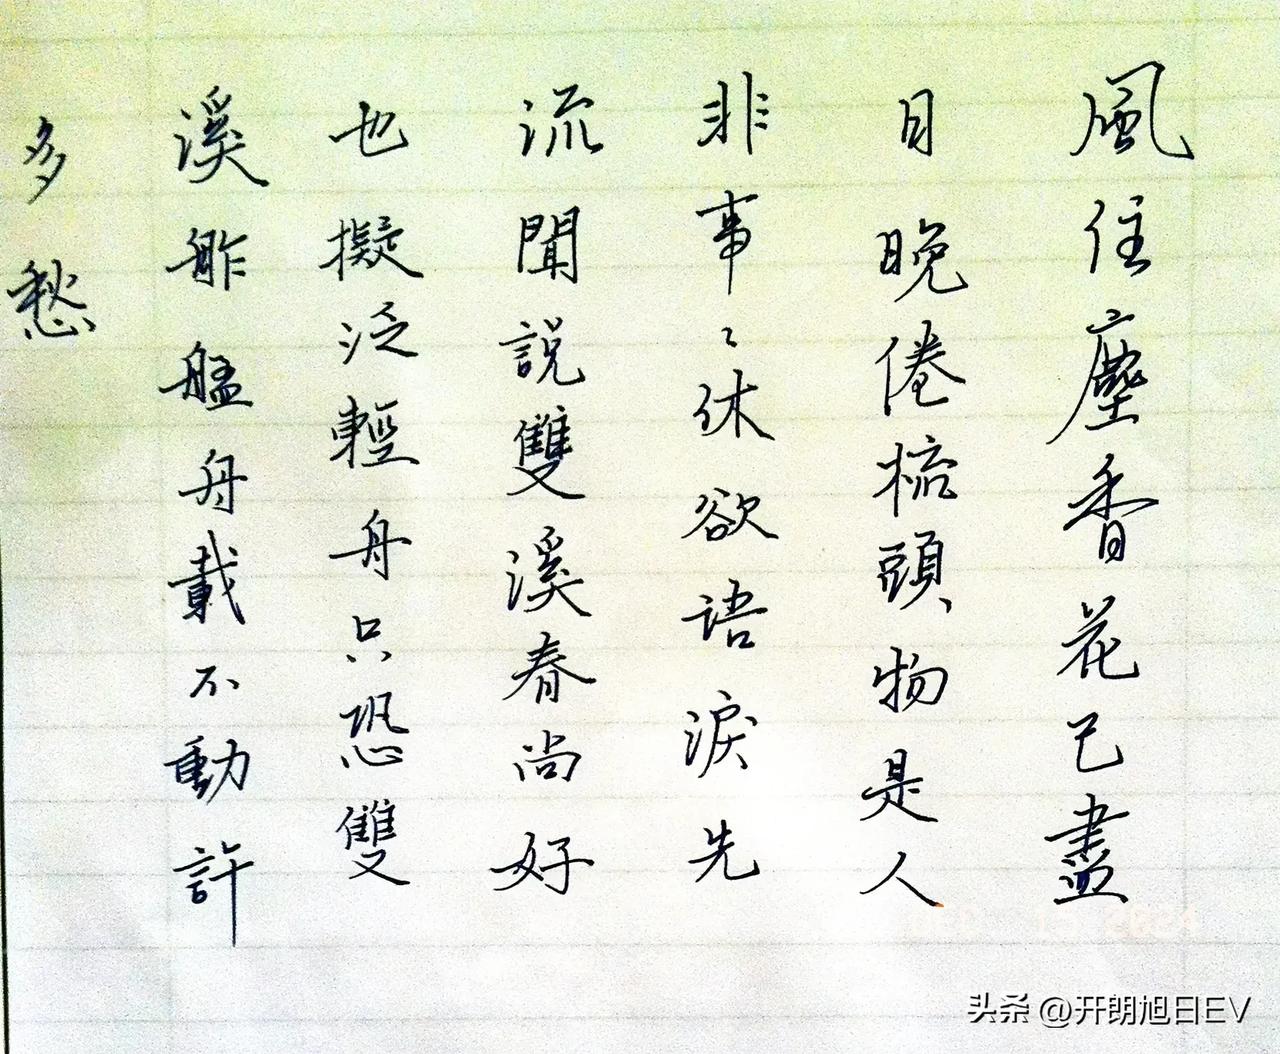 風住塵香花已盡
日晚倦梳頭物是人
非事〻休欲語淚先
流聞說雙溪春尚好
也擬泛輕舟只恐雙
溪舴艋舟載不動許
多愁
DEC 15 2024
头条 @开朗旭日EV